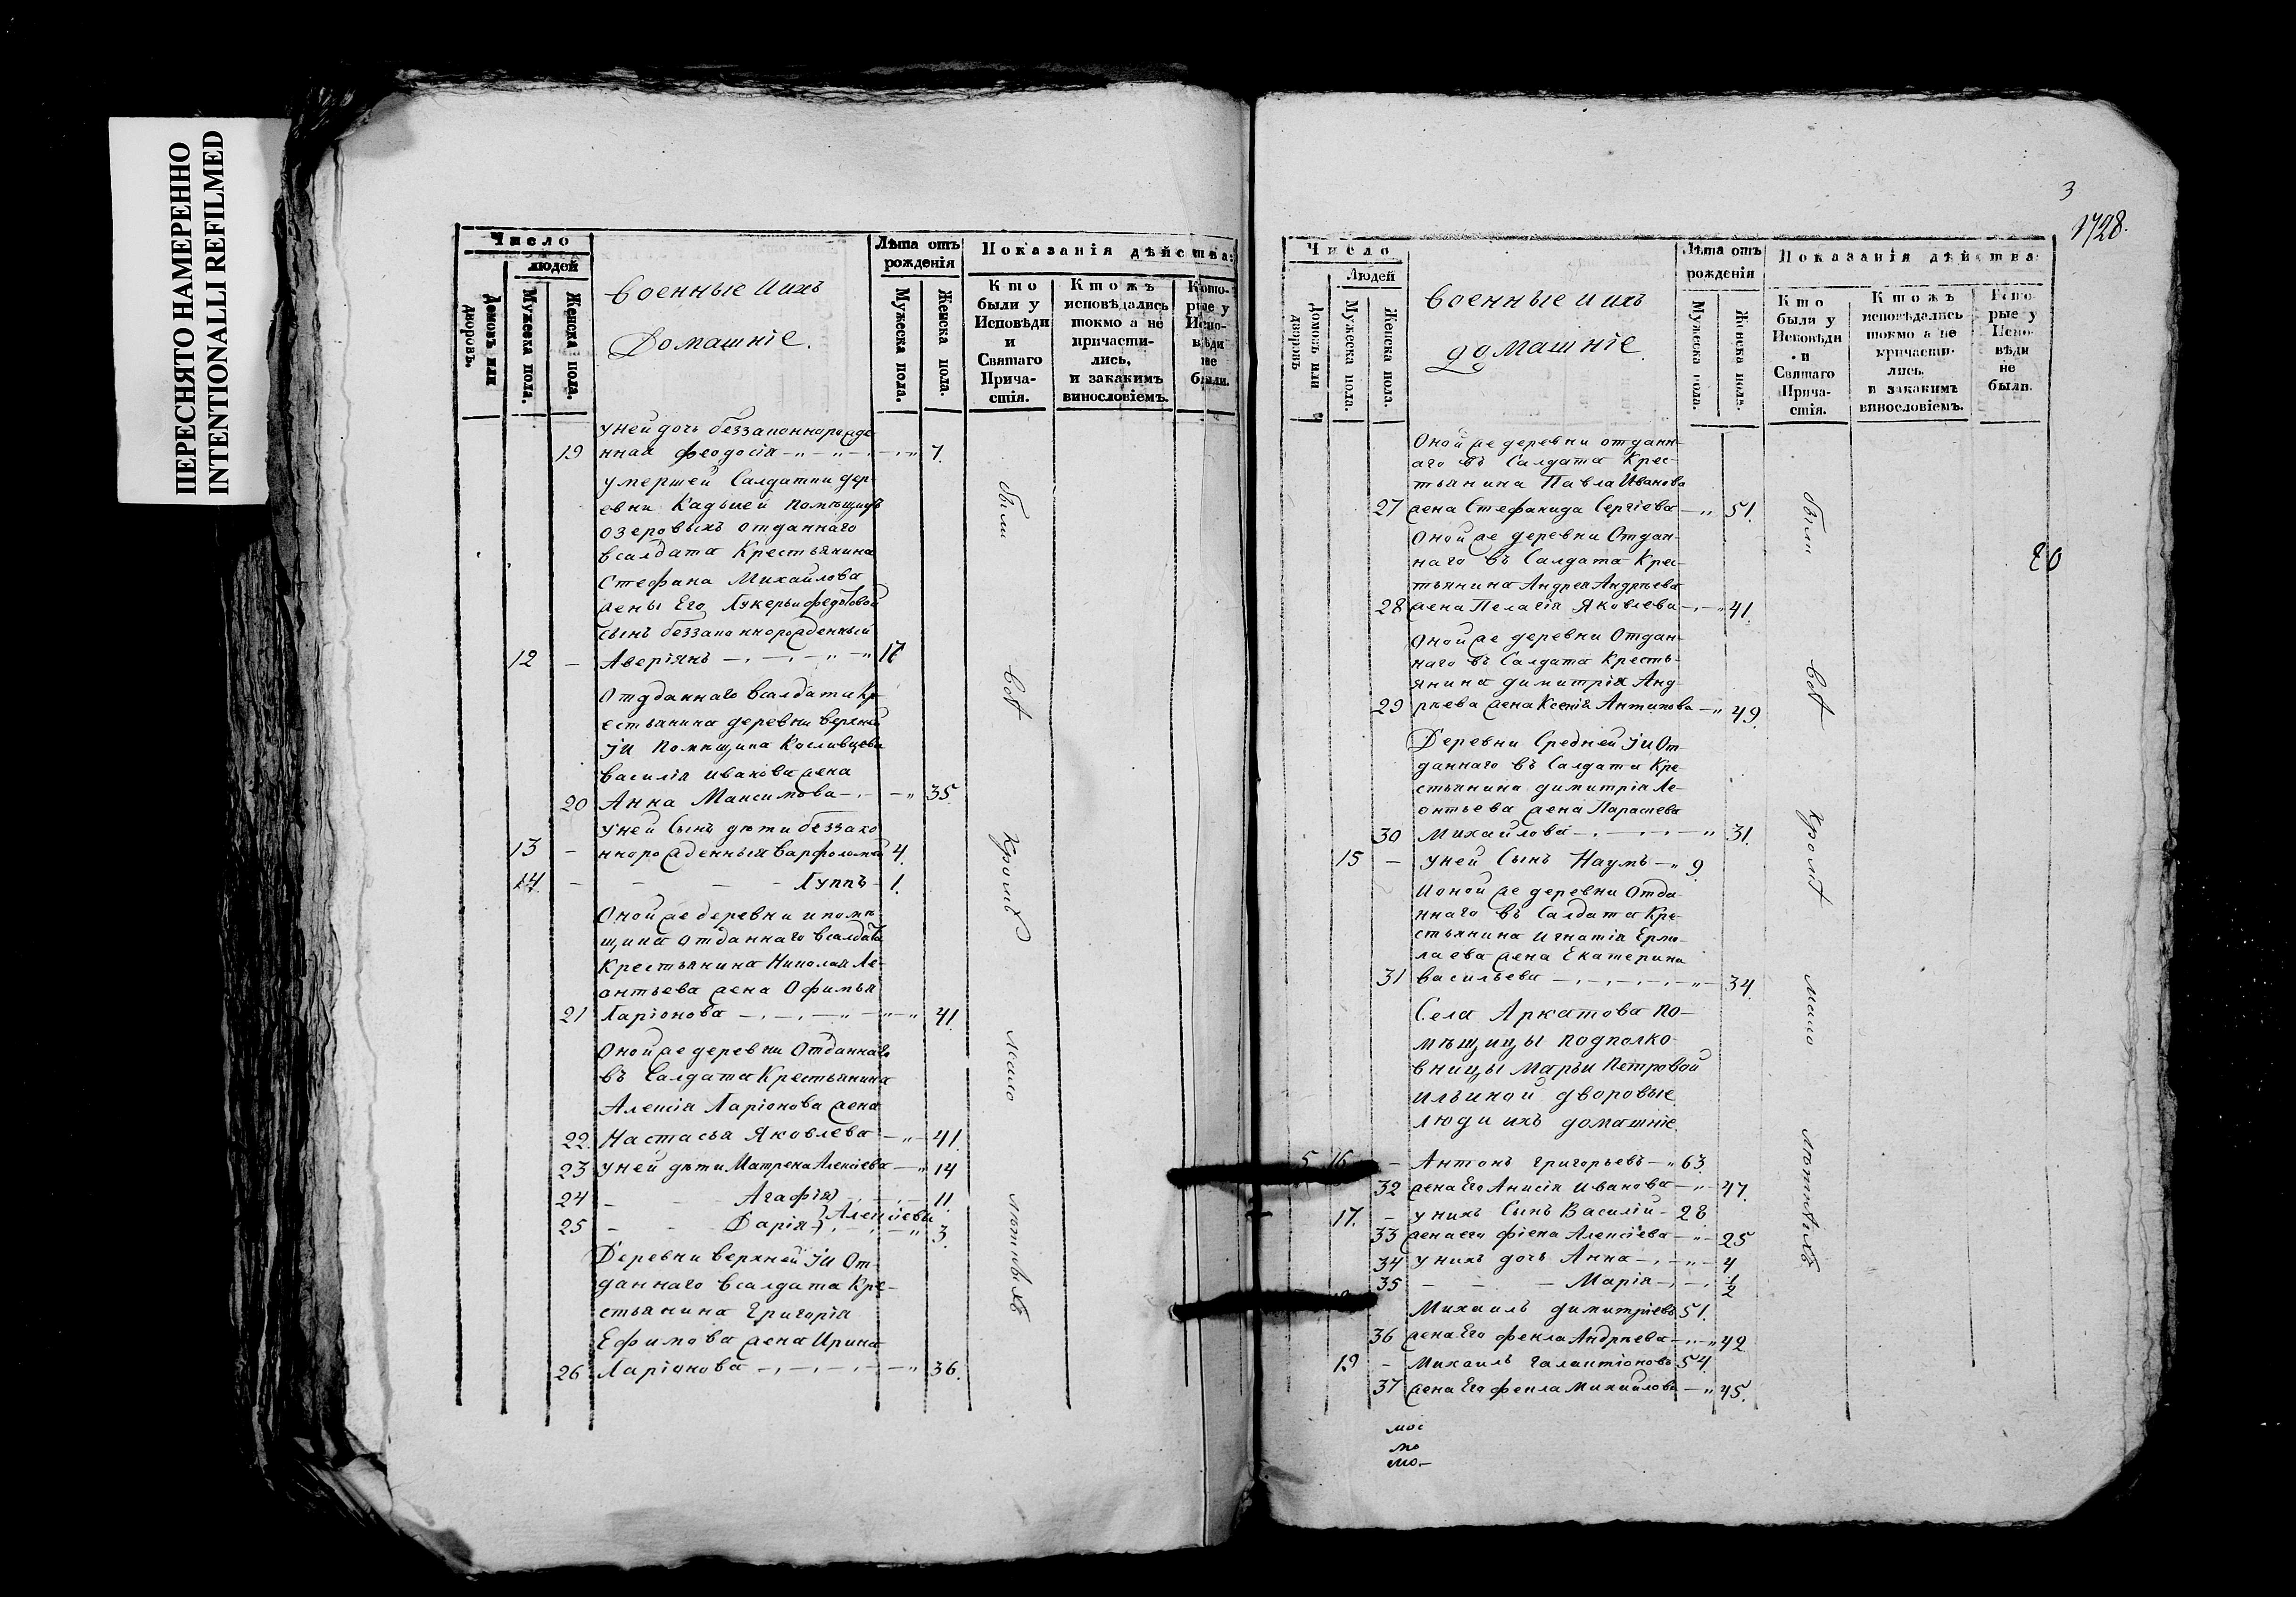 ПЕРЕСНЯТО НАМЕРЕННО
INTENTIONALLI REFILMED
Число
людей
Домовъ или дворовъ.
Мужеска пола.
Женска пола.
Военные и ихъ
Домашніе.
Лѣта отъ рожденія
Мужеска пола.
Женска пола.
Показанія дѣйства:
Кто были у Исповѣди и Святаго Прича-стія.
Ктожъ исповѣдались токмо а не причасти-лись, и закакимъ винословіемъ.
Кото-рые у Испо-вѣди не были.
уней дочь беззаконнорожде
19 нная Феодосія 7.
умершей Салдатки дер-
евни Кадьшей помѣщиковъ
озеровыхъ отданнаго
всалдата Крестьянина
Стефана Михайлова
жены Его Лукерьи
сынъ беззаконнорожденный
12 – Аверіянъ 17
Отданнаго Всалдаты Кр-
естьянина деревни верхней
іи помѣщика
Василія Иванова жена
20 Анна Максимова 35.
уней Сынъ дѣти беззако
13 – ннорожденныя Варфоломей 4.
14. – – – – Луппъ 1.
Оной же деревни и помѣ
щика отданнаго Всалдата
Крестьянина Николая Ле-
онтьева жена Офимья
21 Ларіонова 41.
Оной же деревни Отданнаго
въ Салдата Крестьянина
Алексія Ларіонова жена
22. Настасья Яковлева 41.
23 уней дѣти Матрена Алексіева 14
24 – – Агафія 11.
Алексіевы
25 – – Дарія 3.
Деревни верхней іи От-
даннаго всалдата Кре-
стьянина Григорія
Ефимова жена Ирина
26 Ларіонова 36.
были
всѣ
Кромѣ
мало
лѣтныхъ
3
1728.
Число
Людей
Домовъ или дворовъ
Мужеска пола.
Женска пола.
Военные и ихъ
домашніе
Лѣта отъ рожденія
Мужеска пола.
Женска пола.
Показанія дѣйства:
Кто были у Исповѣди и Святаго Прича-стія.
Ктожъ исповѣдались токмо а не причасти-лись. и закакимъ винословіемъ.
Кото-рые у Испо-вѣди не были.
Оной же деревни отданн-
аго въ Салдата Крес-
тьянина Павла Иванова
27 жена Стефанида Сергіева 51.
Оной же деревни Отдан-
наго въ Салдата Крес-
тьянина Андрея Андрѣева
28 жена Пелагія Яковлева 41.
Оной же деревни Отдан-
наго въ Салдата Кресть-
янина димитрія Анд-
29 рѣева жена Ксенія Антипова 49.
Деревни Средней іи От-
даннаго въ Салдаты Кре-
стьянина димитрія Ле-
онтьева жена Парасгева
30 Михайлова 31.
15 – уней Сынъ Наумъ 9.
Ионой же деревни Отда-
ннаго въ Салдата Кре-
стьянина Игнатія Ермо-
лаева жена Екатерина
31 васильева 34.
Села Аркатова по-
мѣщицы подполко-
вницы Марьи Петровой
Ильиной дворовые
люди ихъ домашніе.
5 16 – Антонъ григорьевъ 63.
32 жена Его Анисія Иванова 47.
17. – у нихъ Сынъ Василій 28
33 жена его Фіена Алексіева 25
34 у нихъ дочь Анна 4
35 – – – Марія 1/2
Михаилъ димитріевъ 51.
36 жена Его Фекла Андрѣева 42
19 – Михаилъ галактіоновъ 54.
37 жена Его Фекла Михайлова 45.
были
всѣ
Кромѣ
мало
лѣтныхъ
20